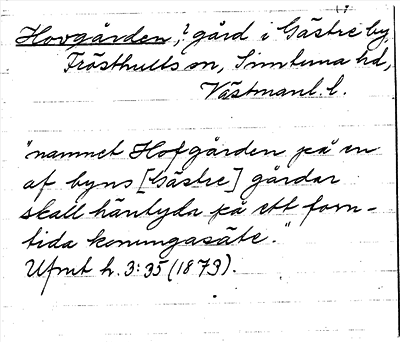 Hovgården,? gård i Gästre by,
Frösthults sn, Simtuna hd,
Västmanl. l.
"namnet Hofgården på en
af byns [Gästre] gårdar
skall häntyda på ett forn-
tida konungasäte."
Ufmt h. 3: 35 (1873).